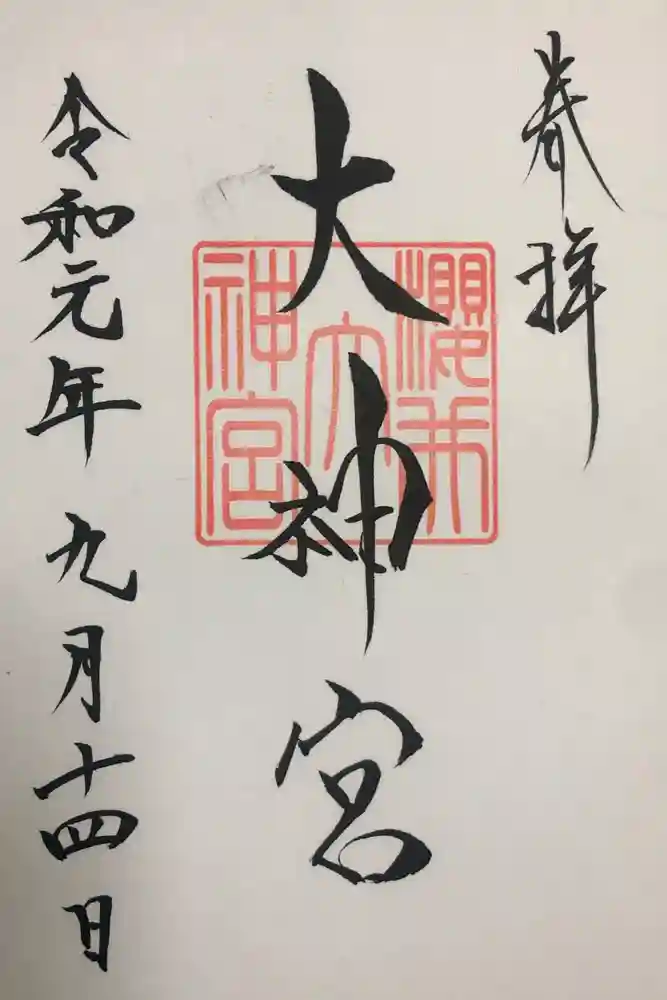 奉拝
大神宮
大
神宮
令和元年九月十四日